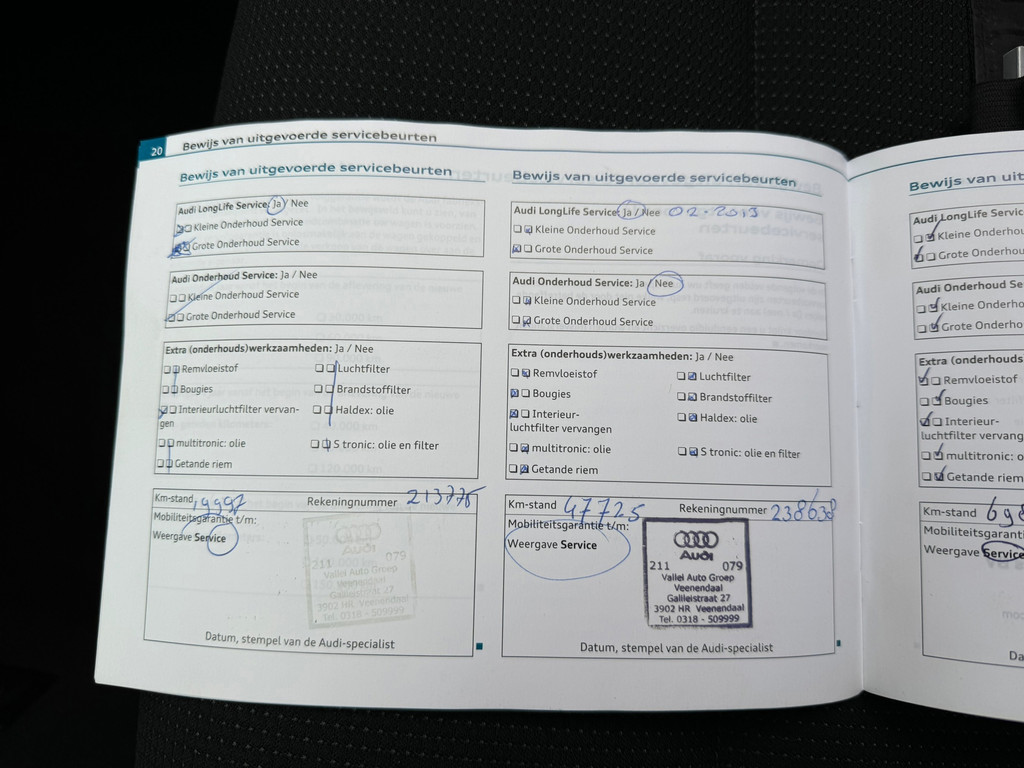 20 Bewijs van uitgevoerde servicebeurten
Bewijs van uitgevoerde servicebeurten
Audi LongLife Service: Ja / Nee
Kleine Onderhoud Service
Grote Onderhoud Service
Audi Onderhoud Service: Ja / Nee
Kleine Onderhoud Service
Grote Onderhoud Service
Extra (onderhouds)werkzaamheden: Ja / Nee
Remvloeistof
Luchtfilter
Bougies
Brandstoffilter
Interieurluchtfilter vervan-
gen
Haldex: olie
multitronic: olie
S tronic: olie en filter
Getande riem
Km-stand 19992
Rekeningnummer 213775
Mobiliteitsgarantie t/m:
Weergave Service
Audi
211 079
Vallei Auto Groep
Veenendaal
Galileistraat 27
3902 HR Veenendaal
Tel. 0318 - 509999
Datum, stempel van de Audi-specialist
Bewijs van uitgevoerde servicebeurten
Audi LongLife Service: Ja / Nee 02-2013
Kleine Onderhoud Service
Grote Onderhoud Service
Audi Onderhoud Service: Ja / Nee
Kleine Onderhoud Service
Grote Onderhoud Service
Extra (onderhouds)werkzaamheden: Ja / Nee
Remvloeistof
Luchtfilter
Bougies
Brandstoffilter
Interieur-
luchtfilter vervangen
Haldex: olie
multitronic: olie
S tronic: olie en filter
Getande riem
Km-stand 47725
Rekeningnummer 238638
Mobiliteitsgarantie t/m:
Weergave Service
Audi
211 079
Vallei Auto Groep
Veenendaal
Galileistraat 27
3902 HR Veenendaal
Tel. 0318 - 509999
Datum, stempel van de Audi-specialist
Bewijs van uit
Audi LongLife Servic
Kleine Onderhou
Grote Onderhou
Audi Onderhoud Se
Kleine Onderho
Grote Onderho
Extra (onderhouds
Remvloeistof
Bougies
Interieur-
luchtfilter vervang
multitronic: o
Getande riem
Km-stand 698
Mobiliteitsgaranti
Weergave Service
Da